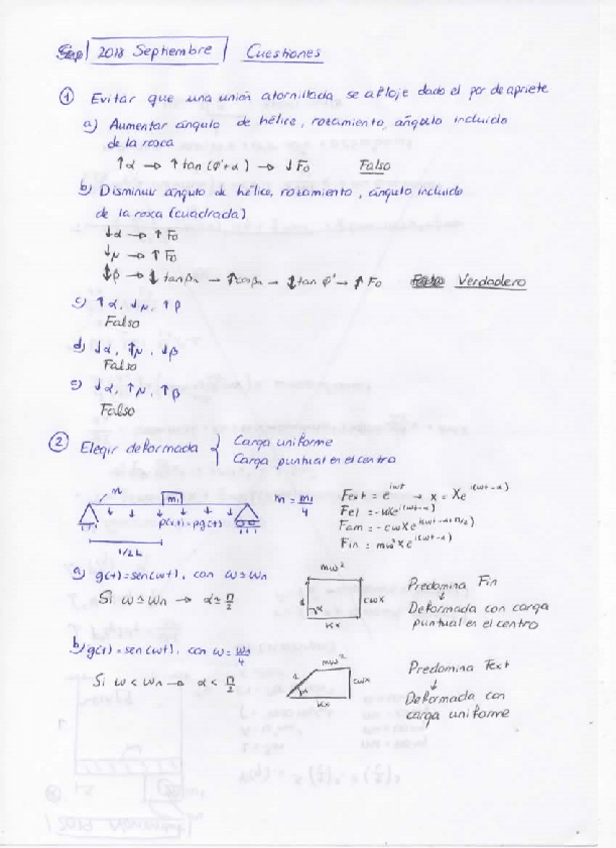 2018 Septiembre Cuestiones
① Evitar que una unión atornillada, se afloje dado el par de apriete
a) Aumentar ángulo de hélice, rozamiento, ángulo incluido
de la rosca
↑α → ↑ tan(φ'+α) → ↓ Fo Falso
b) Disminuir ángulo de hélice, rozamiento, ángulo incluido
de la rosca (cuadrada)
↓α → ↑ Fo
↓μ → ↑ Fo
↓β → ↓ tanβn → ↑cosβn → ↓ tan φ' → ↑ Fo Verdadero
c) ↑α, ↓μ, ↑β
Falso
d) ↓α, ↑μ, ↓β
Falso
e) ↓α, ↑μ, ↑β
Falso
② Elegir deformada { Carga uniforme
Carga puntual en el centro
m m₁ m = m₁/4
p(x,t) = p g(t)
1/2 L
Fext = e^{iωt} → x = Xe^{i(ωt-α)}
Fel = -kXe^{i(ωt-α)}
Fam = -cωXe^{i(ωt-α+π/2)}
Fin = mω²Xe^{i(ωt-α)}
a) g(t) = sen(ωt), con ω ≃ ωn
Si ω ≃ ωn → α ≃ π/2
mω²
1 α cωx
kx
Predomina Fin
↓
Deformada con carga
puntual en el centro
b) g(t) = sen(ωt), con ω = ωn/4
Si ω < ωn → α < π/2
mω²
1 α cωx
kx
Predomina Fext
↓
Deformada con
carga uniforme